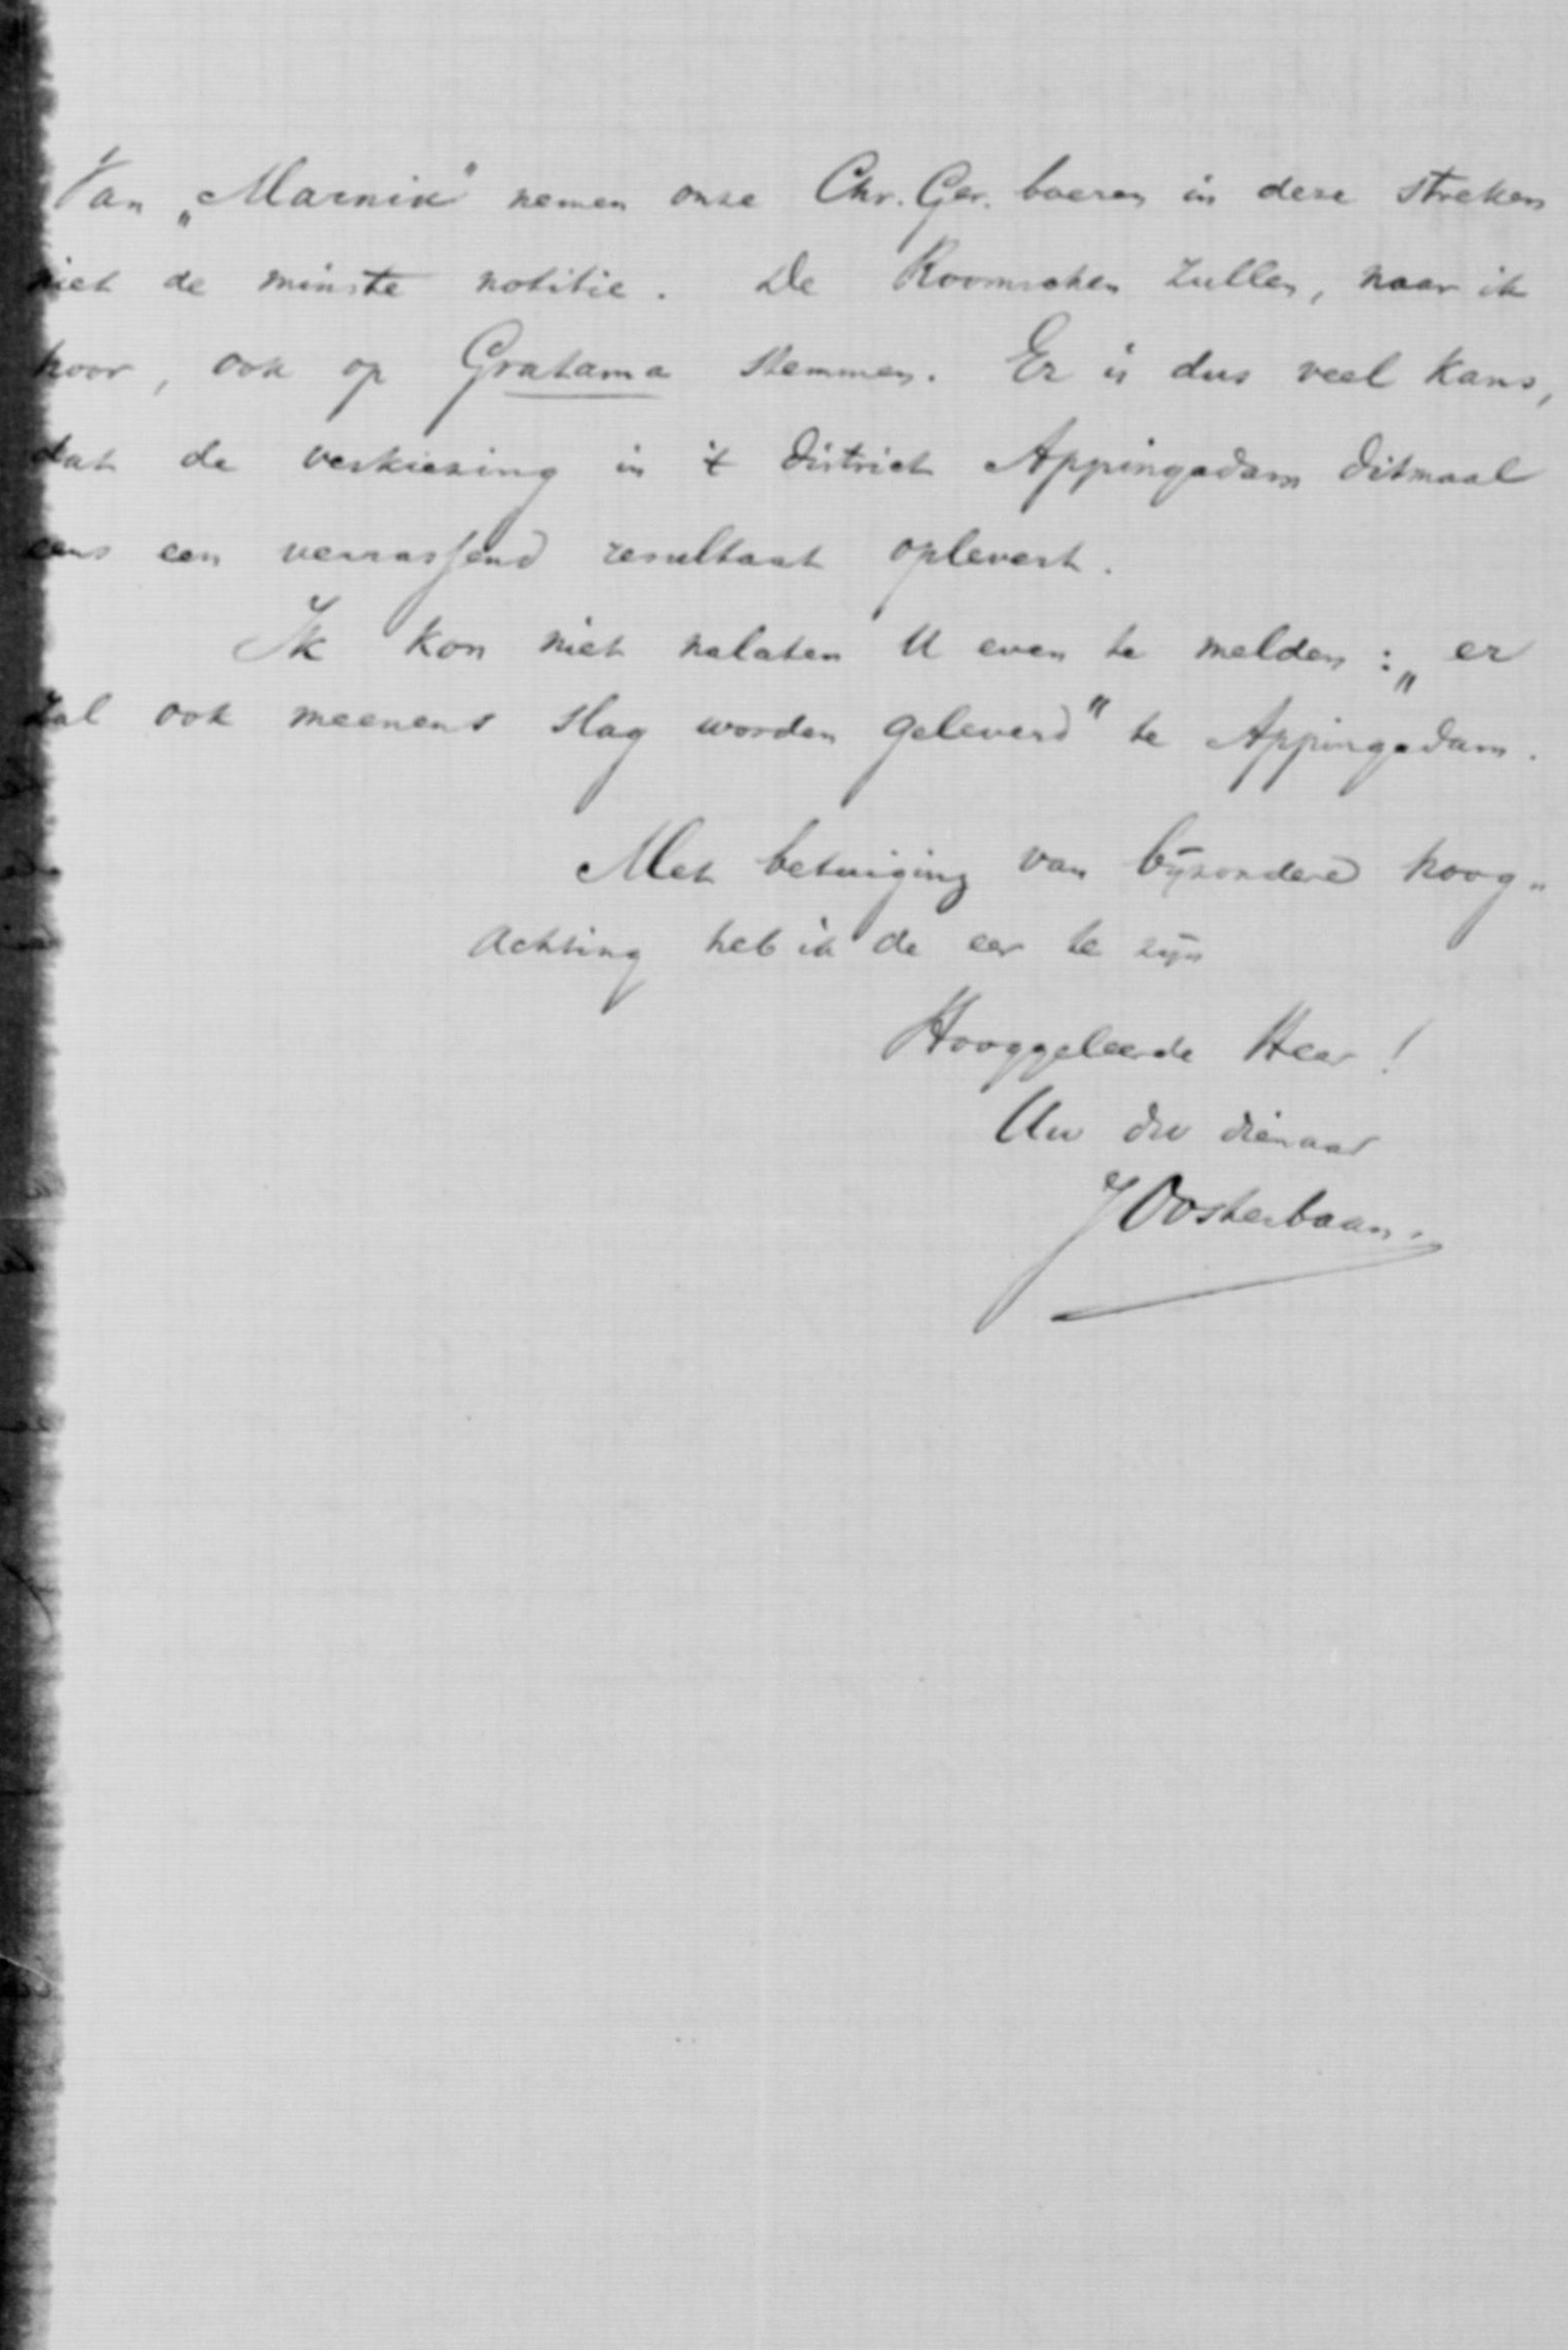 Van „Marnix" nemen onze Chr. Ger. boeren in deze streken
niet de minste notitie. De Roomschen zullen, naar ik
hoor, ook op Gratama stemmen. Er is dus veel kans,
dat de verkiezing in 't district Appingadam ditmaal
eens een verrassend resultaat oplevert.
Ik kon niet nalaten U even te melden: „er
zal ook meenens slag worden geleverd" te Appingadam.
Met betuiging van bijzondere hoog„
achting heb ik de eer te zijn
Hooggeleerde Heer!
Uw dw dienaar
J Oosterbaan.